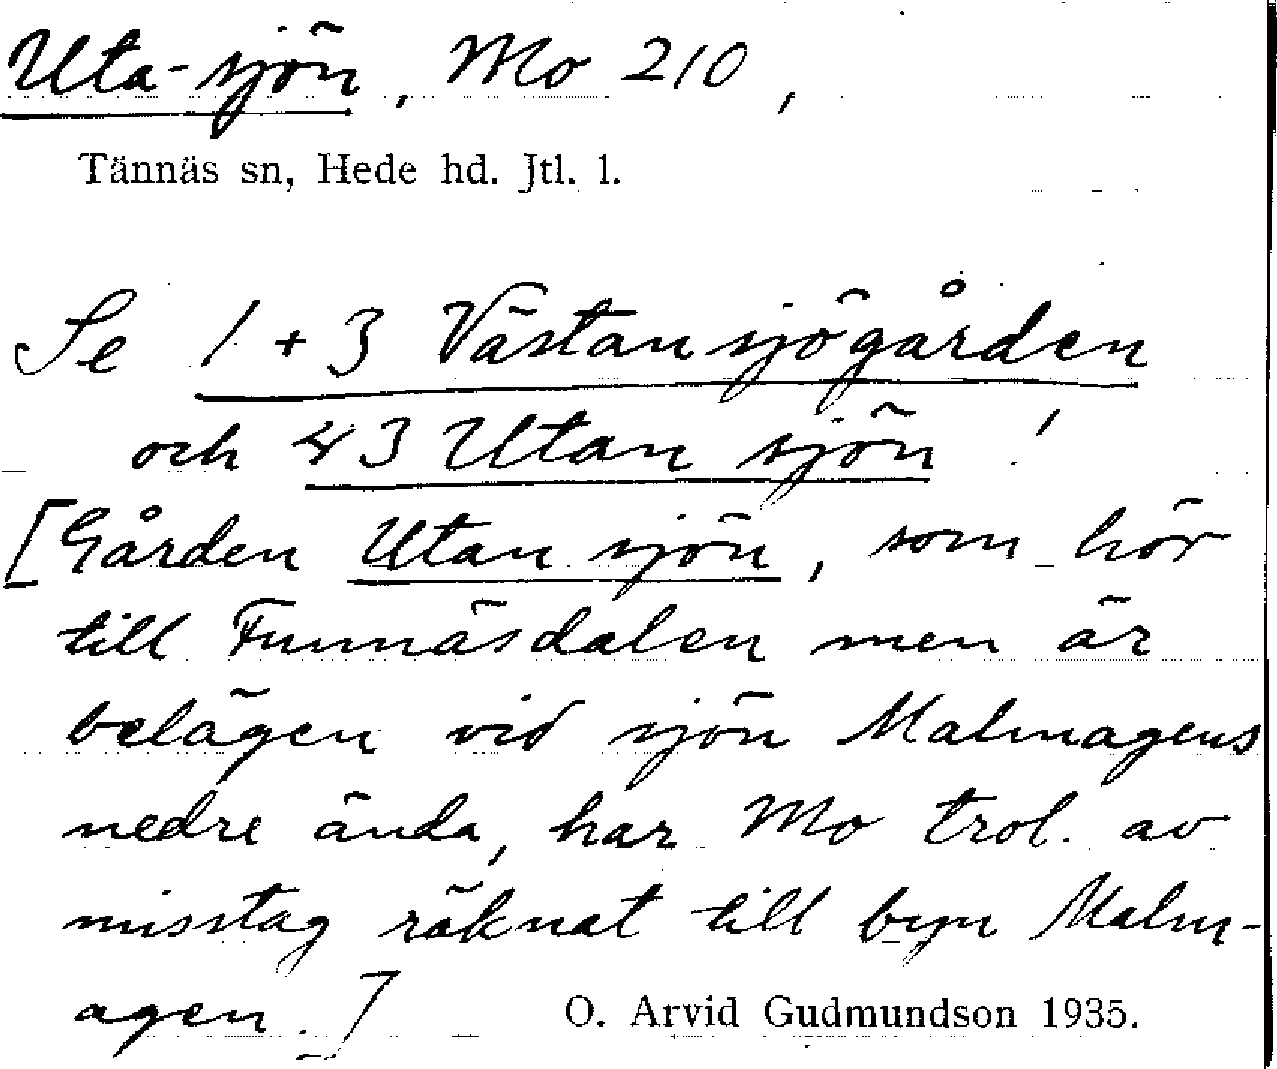 Uta-sjön, Mo 210,
Tännäs sn, Hede hd. Jtl. l.
Se 1+3 Västansjögården
och 43 Utan sjön!
[Gården Utan sjön, som hör
till Funnäsdalen men är
belägen vid sjön Malmagens
nedre ända, har Mo trol. av
misstag räknat till byn Malm-
agen.]
O. Arvid Gudmundson 1935.